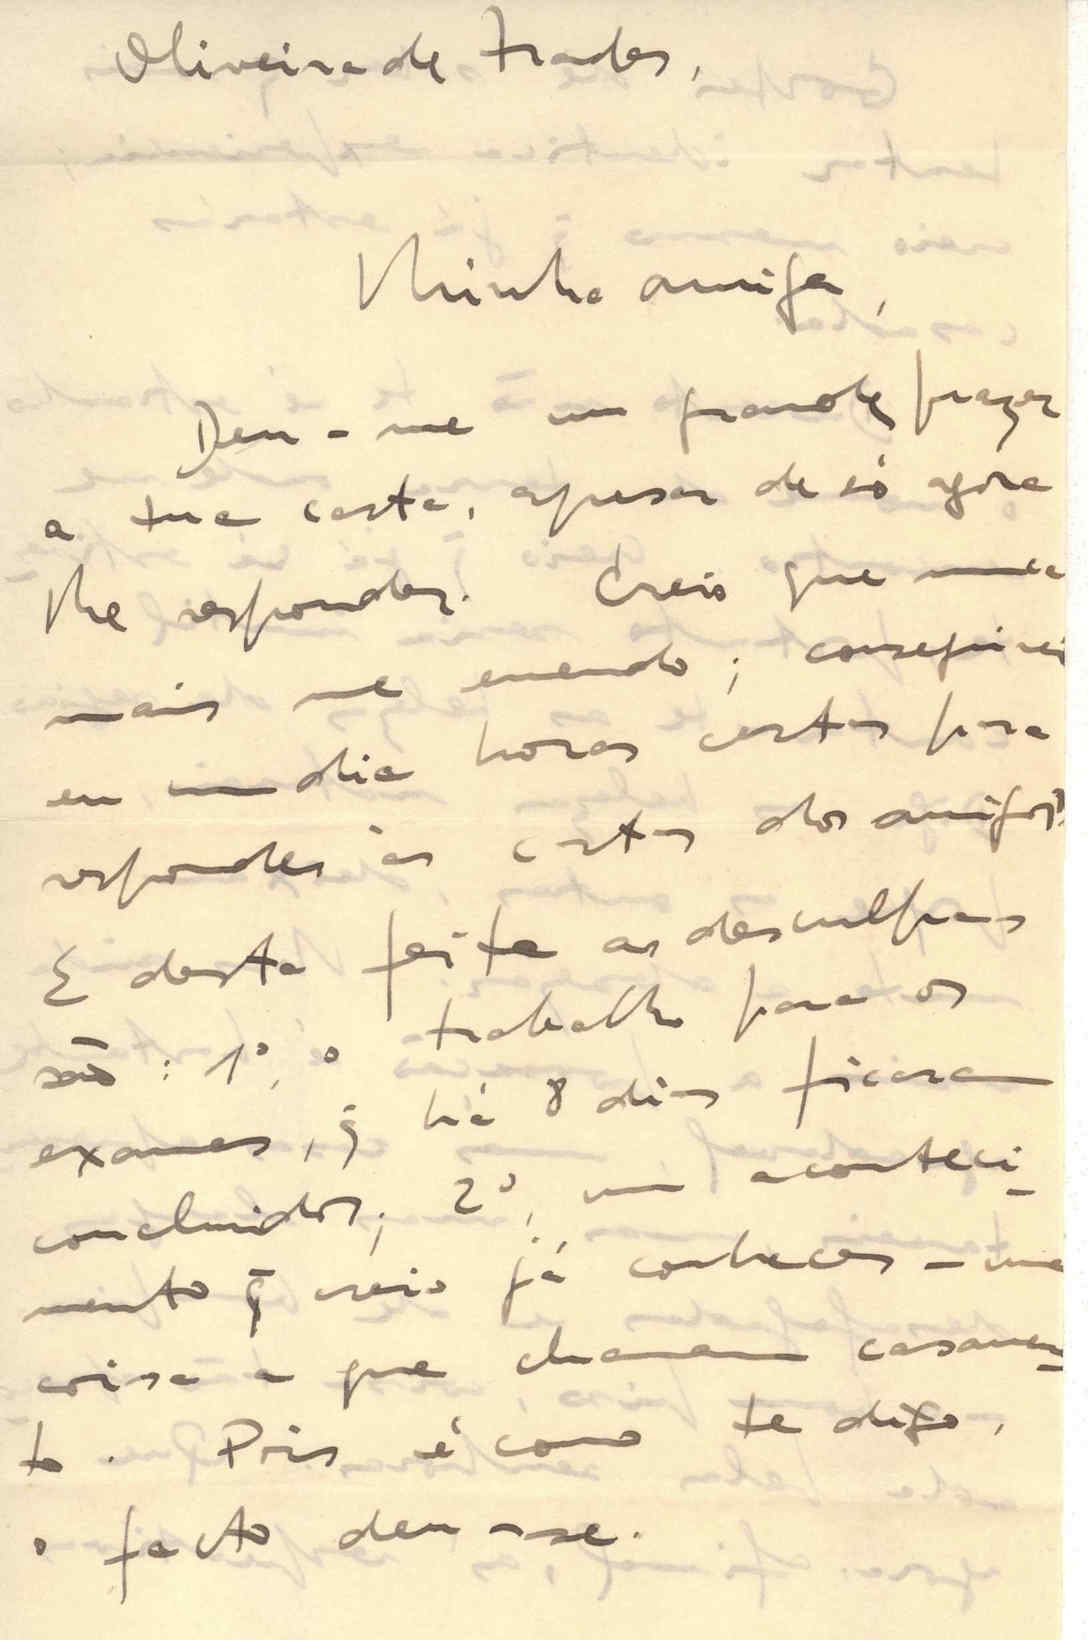 Oliveira de Frades,
Minha amiga,
Deu-me um grande prazer
a tua carta, apesar de só agora
lhe responder. Creio que nunca
mais me emendo; conseguirei
eu um dia horas certas para
responder às cartas dos amigos?
E desta feita as desculpas
são: 1º, o trabalho para os
exames, q̃ há 8 dias ficaram
concluidos; 2º, um aconteci-
mento q̃ creio já conheces - uma
coisa a que chamam casamen-
to. Pois é como te digo,
o facto deu-se.